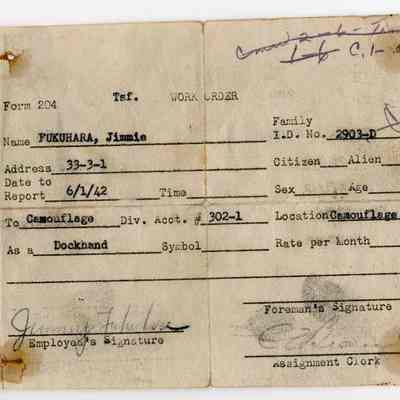 1-6 C.1-
Form 204 Tsf. WORK ORDER
Family
Name FUKUHARA, Jimmie I.D. No. 2903-D
Address 33-3-1 Citizen Alien
Date to
Report 6/1/42 Time Sex Age
To Camouflage Div. Acct. # 302-1 Location Camouflage
As a Dockhand Symbol Rate per Month
Foreman's Signature
Jimmy Fukuhara
Employee's Signature
Assignment Clerk